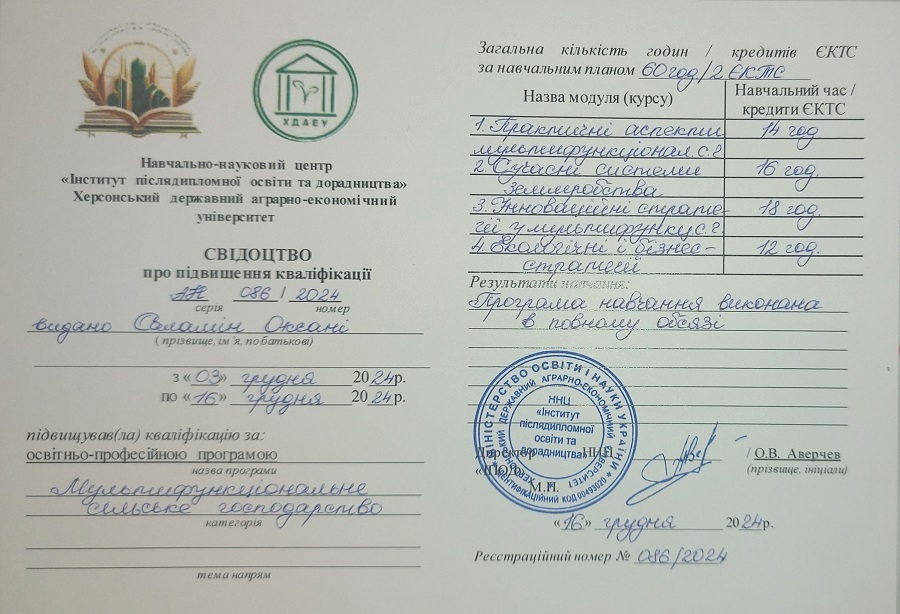 ХДАЕУ
Навчально-науковий центр
«Інститут післядипломної освіти та дорадництва»
Херсонський державний аграрно-економічний
університет
СВІДОЦТВО
про підвищення кваліфікації
АН 086 / 2024
серія номер
видано Оксані
( прізвище, ім’я, по батькові)
з «03» грудня 2024р.
по «16» грудня 2024р.
підвищував(ла) кваліфікацію за:
освітньо-професійною програмою
назва програми
Мультифункціональне
сільське господарство
категорія
тема напрям
Загальна кількість годин / кредитів ЄКТС
за навчальним планом 60год/2 ЄКТС
Назва модуля (курсу) Навчальний час /
кредити ЄКТС
1. Практичні аспекти 14 год
мультифункціонал. с.г
2. Сучасні системи 16 год.
землеробства
3. Інноваційні страте- 18 год.
гії у мультифункц с.г.
4. Екологічні і бізнес- 12 год.
стратегії
Результати навчання:
Програма навчання виконана
в повному обсязі
МІНІСТЕРСТВО ОСВІТИ І НАУКИ УКРАЇНИ
ХЕРСОНСЬКИЙ ДЕРЖАВНИЙ АГРАРНО-ЕКОНОМІЧНИЙ УНІВЕРСИТЕТ
ІДЕНТИФІКАЦІЙНИЙ КОД 00493020
ННЦ
«Інститут
післядипломної
освіти та
дорадництва»
Директор ННЦ
/ О.В. Аверчев
(прізвище, ініціали)
М.П.
«16» грудня 2024р.
Реєстраційний номер № 086/2024